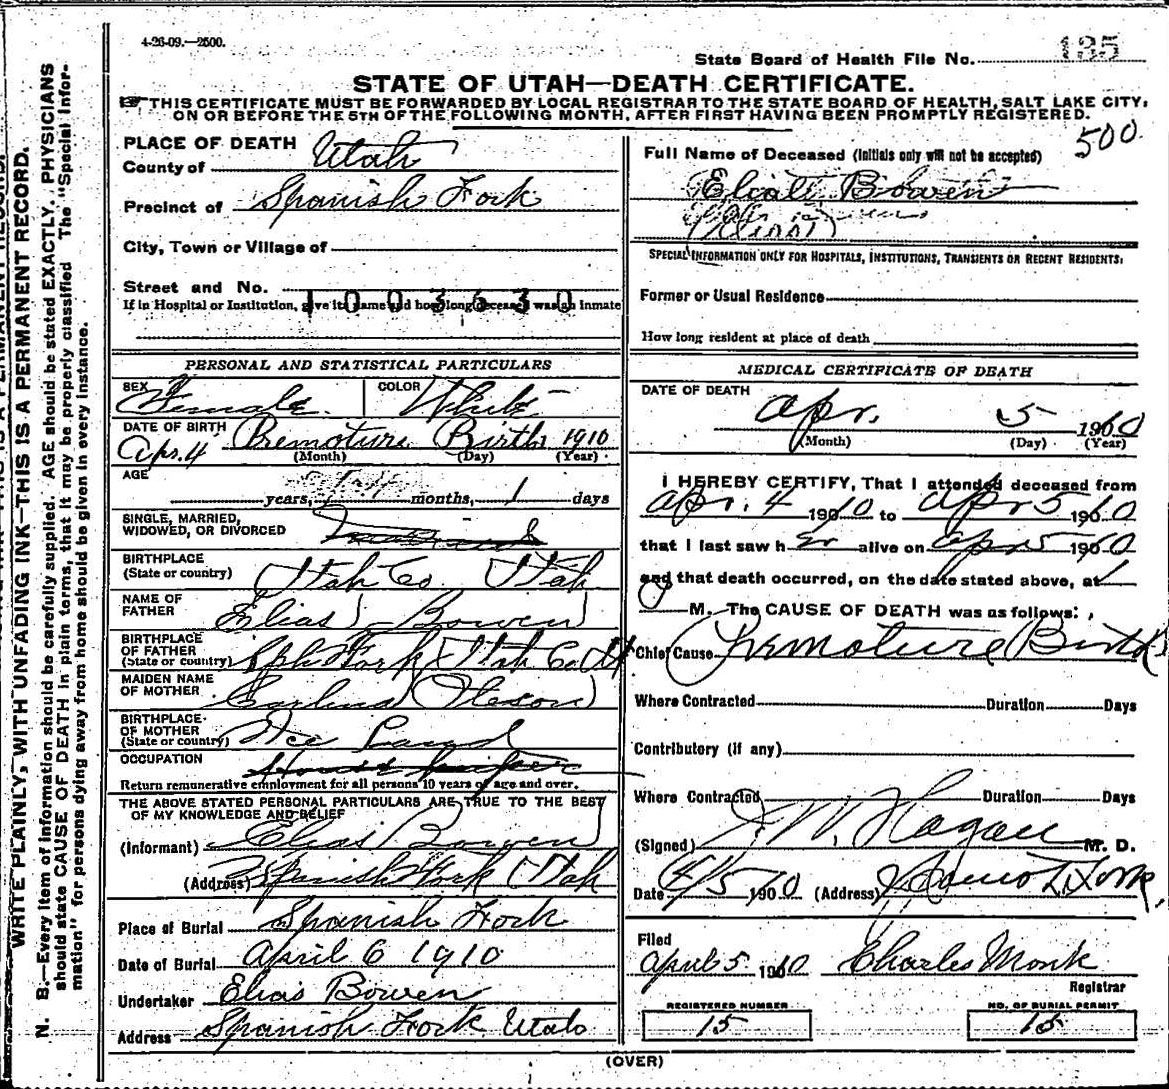 4-26-09.—2500.
State Board of Health File No. 135
STATE OF UTAH—DEATH CERTIFICATE.
THIS CERTIFICATE MUST BE FORWARDED BY LOCAL REGISTRAR TO THE STATE BOARD OF HEALTH, SALT LAKE CITY,
ON OR BEFORE THE 5TH OF THE FOLLOWING MONTH, AFTER FIRST HAVING BEEN PROMPTLY REGISTERED.
WRITE PLAINLY, WITH UNFADING INK—THIS IS A PERMANENT RECORD.
N. B.—Every item of information should be carefully supplied. AGE should be stated EXACTLY. PHYSICIANS
should state CAUSE OF DEATH in plain terms, that it may be properly classified The "Special Infor-
mation" for persons dying away from home should be given in every instance.
PLACE OF DEATH
County of Utah
Precinct of Spanish Fork
City, Town or Village of
Street and No.
If in Hospital or Institution, give its name and how long deceased was an inmate
1003630
PERSONAL AND STATISTICAL PARTICULARS
SEX Female
COLOR White
DATE OF BIRTH
Apr. 4 Premature Birth 1910
(Month) (Day) (Year)
AGE
years, months, 1 days
SINGLE, MARRIED,
WIDOWED, OR DIVORCED
BIRTHPLACE
(State or country) Utah Co Utah
NAME OF
FATHER Elias Bowen
BIRTHPLACE
OF FATHER
(State or country) Fork Utah Co
MAIDEN NAME
OF MOTHER
BIRTHPLACE
OF MOTHER
(State or country) Ice Land
OCCUPATION
Return remunerative employment for all persons 10 years of age and over.
THE ABOVE STATED PERSONAL PARTICULARS ARE TRUE TO THE BEST
OF MY KNOWLEDGE AND BELIEF
(Informant) Elias Bowen
(Address) Spanish Fork Utah
Place of Burial Spanish Fork
Date of Burial April 6 1910
Undertaker Elias Bowen
Address Spanish Fork Utah
500
Full Name of Deceased (Initials only will not be accepted)
Bowen
SPECIAL INFORMATION ONLY FOR HOSPITALS, INSTITUTIONS, TRANSIENTS OR RECENT RESIDENTS:
Former or Usual Residence
How long resident at place of death
MEDICAL CERTIFICATE OF DEATH
DATE OF DEATH
Apr. 5 1910
(Month) (Day) (Year)
I HEREBY CERTIFY, That I attended deceased from
Apr. 4 1910 to Apr 5 1910
that I last saw her alive on Apr 5 1910
and that death occurred, on the date stated above, at 1
M. The CAUSE OF DEATH was as follows:
Chief Cause Premature Birth
Where Contracted Duration Days
Contributory (if any)
Where Contracted Duration Days
(Signed) J W. Hagan M. D.
Date 4/5 1910 (Address) Spanish Fork
Filed
April 5 1910 Charles Monk
Registrar
REGISTERED NUMBER
15
NO. OF BURIAL PERMIT
15
(OVER)